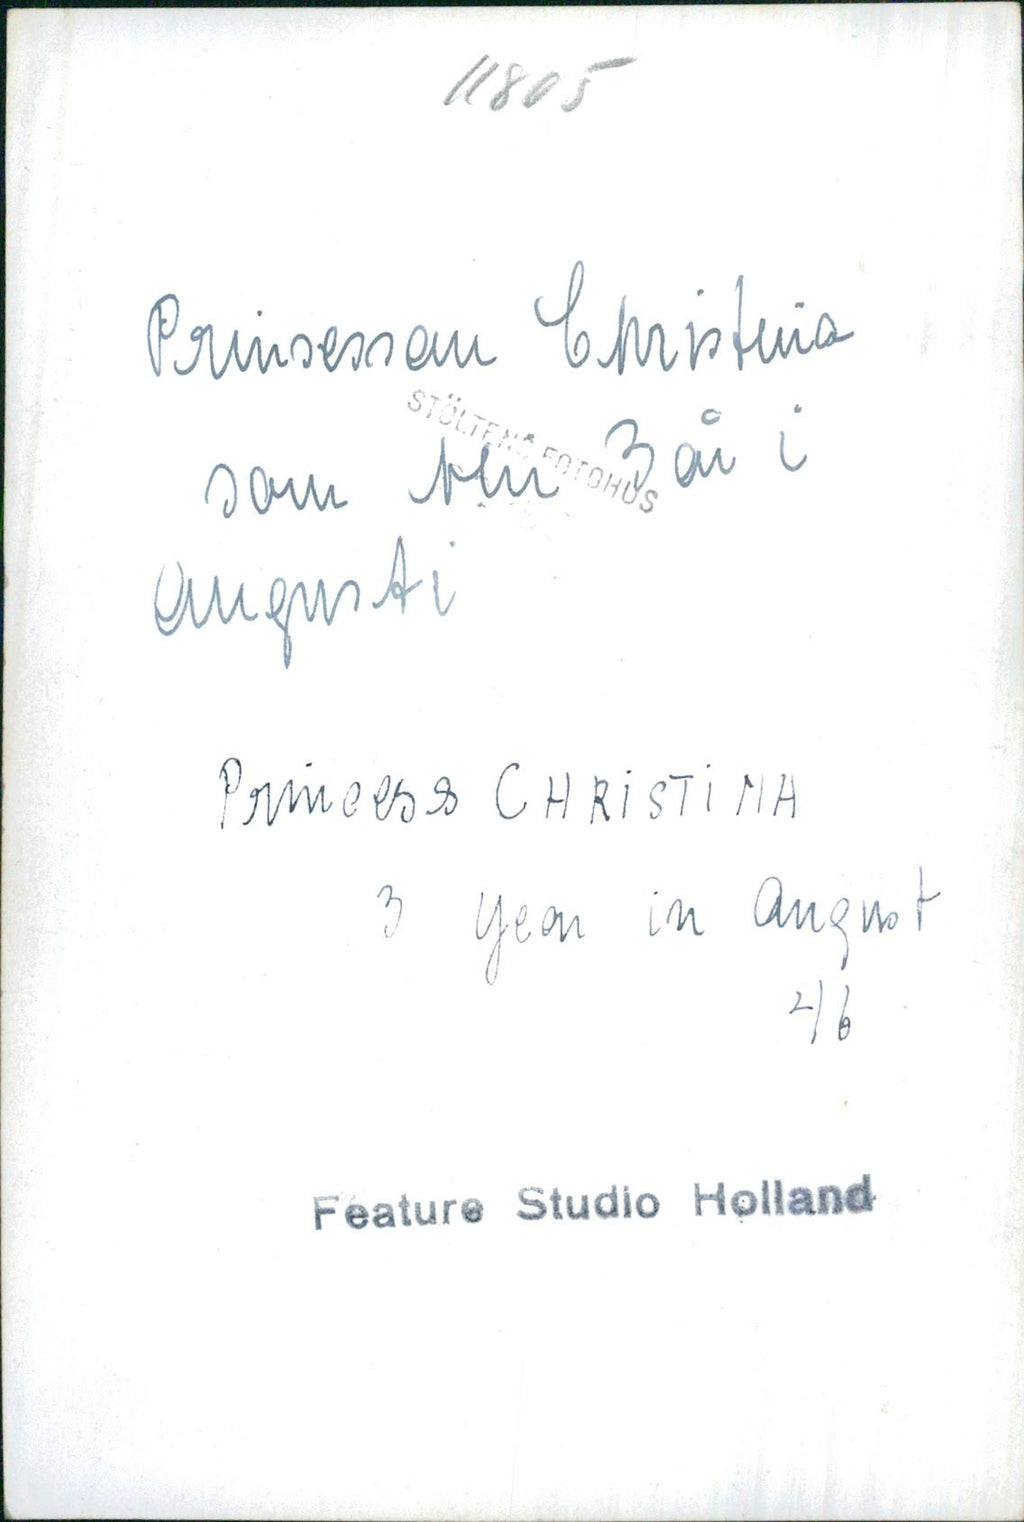 11805
Prinsessan Christina
STÖLTENS FOTOHUS
som blir 3 år i
Augusti
Princess CHRISTINA
3 Year in August
4/6
Feature Studio Holland